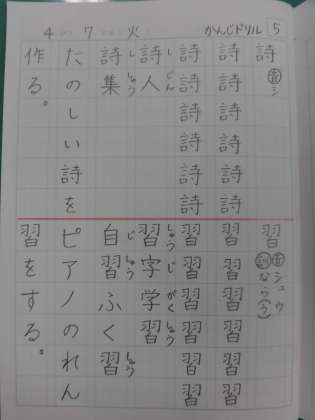 4 7 火 かんじドリル 5
詩 音シ
詩詩詩詩詩詩
詩詩詩詩詩詩
詩人 しじん
詩集 ししゅう
たのしい詩を
作る。
習 音シュウ 訓なら(う)
習習習習習習
習習習習習習
習字学習 しゅうじがくしゅう
自習ふく習 じしゅうしゅう
ピアノのれん
習をする。